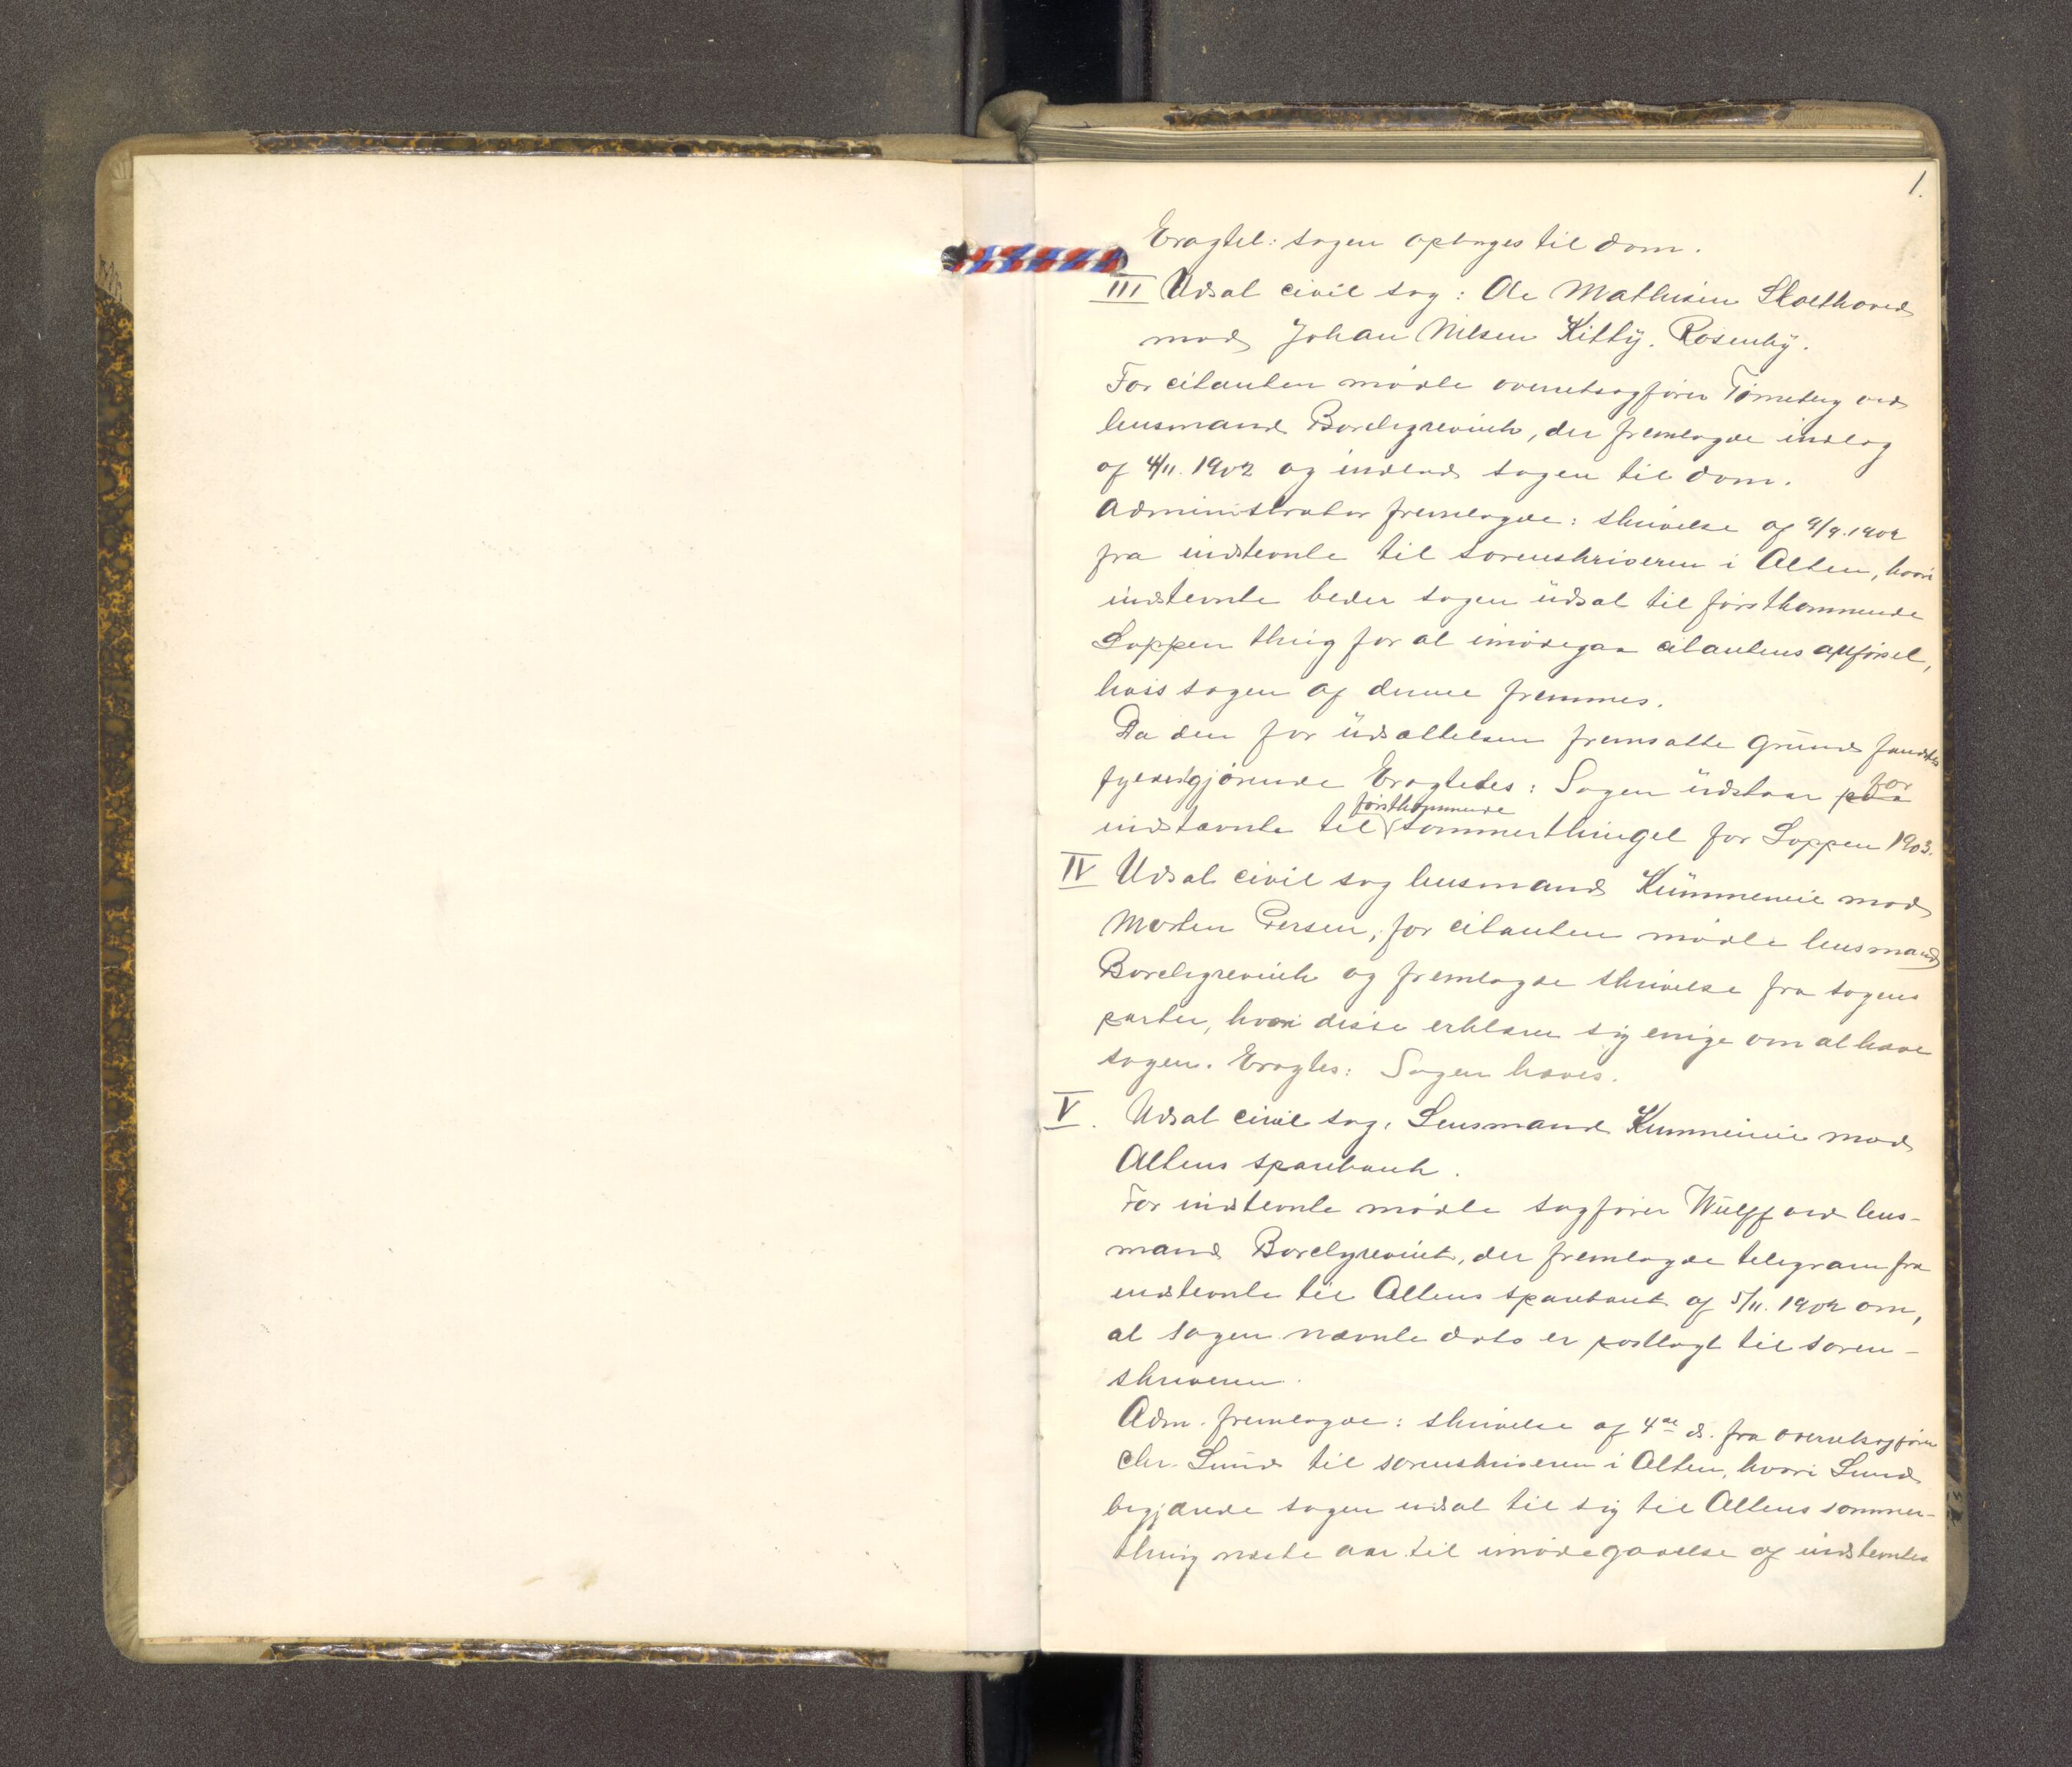 1.
Eragtet: sagen optages til dom.
III Udsat civil sag: Ole Mathisen Skolthoved
mod Johan Nilsen Kitty. Rosenby.
For citanten mødte overretssagfører Tørneberg ved
lensmand Borchgrevink, der fremlagde indlæg
af 4/11. 1902 og indlod sagen til dom.
Administrator fremlagde: skrivelse af 9/9. 1902
fra indstevnte til sorenskriveren i Alten, hvori
indstevnte beder sagen udsat til førstkommende
Loppen thing for at imødegaa citantens anførsel,
hvis sagen af denne fremmes.
Da den for udsættelsen fremsatte grund fandtes
fyldestgjørende Eragtedes: Sagen udstaar paa for
indstævnte til førstkommende sommerthinget for Loppen 1903.
IV Udsat civil sag lensmand Kummeneie mod
Morten Persen, for citanten mødte lensmand
Borchgrevink og fremlagde skrivelse fra sagens
parter, hvori disse erklærer sig enige om at hæve
sagen. Eragtes: Sagen hæves.
V. Udsat civil sag, Lensmand Kummeneie mod
Altens sparebank.
For indstevnte mødte sagfører Wulff ved lens-
mand Borchgrevink, der fremlagde telegram fra
indstevnte til Altens sparebank af 5/11. 1902 om,
at sagen nævnte dato er postlagt til soren-
skriveren.
Adm. fremlagde: skrivelse af 4de ds. fra overretssagfører
Chr. Lund til sorenskriveren i Alten, hvori Lund
begjærede sagen udsat til sig til Altens sommer-
thing næste aar til imødegaaelse af indstevntes